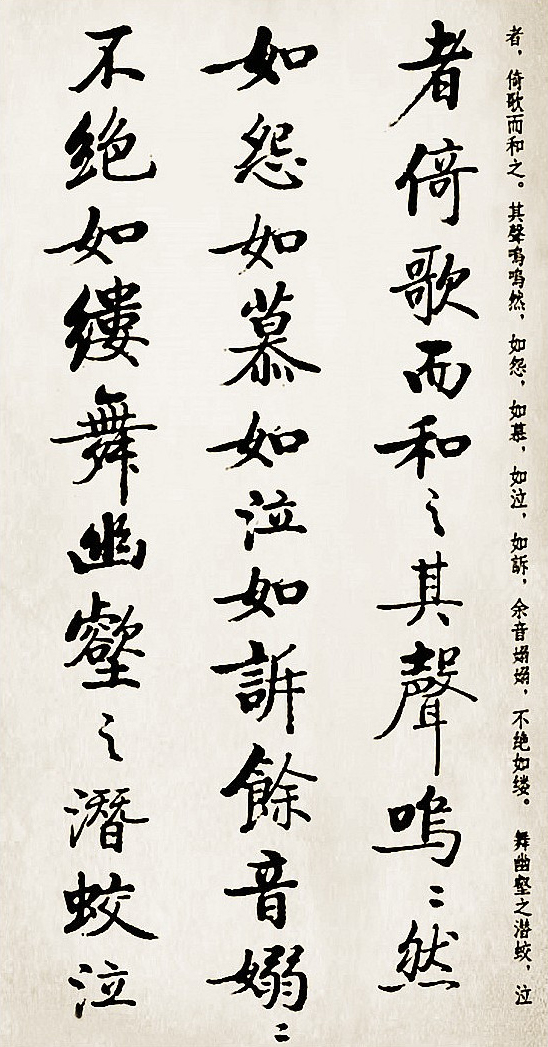 者，倚歌而和之。其聲嗚嗚然，如怨，如慕，如泣，如訴，余音嫋嫋，不绝如缕。舞幽壑之潜蛟，泣
者倚歌而和之其聲嗚〻然
如怨如慕如泣如訴餘音嫋〻
不絕如縷舞幽壑之潛蛟泣